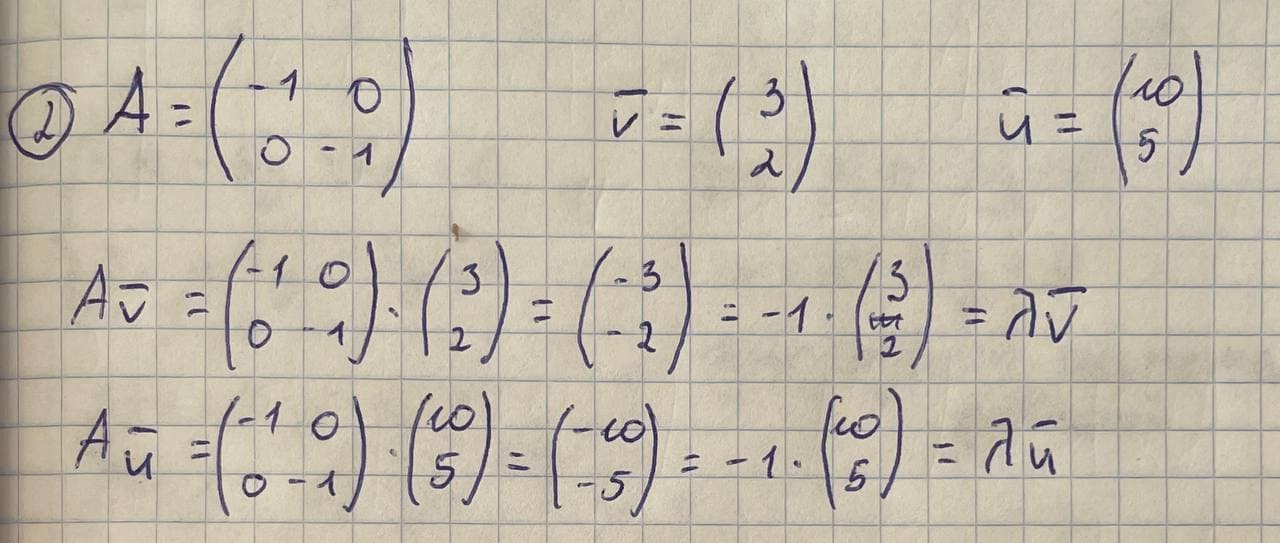 ② A = (-1 0; 0 -1) v̄ = (3; 2) ū = (10; 5)
Av̄ = (-1 0; 0 -1) · (3; 2) = (-3; -2) = -1 · (3; 2) = λv̄
Aū = (-1 0; 0 -1) · (10; 5) = (-10; -5) = -1 · (10; 5) = λū